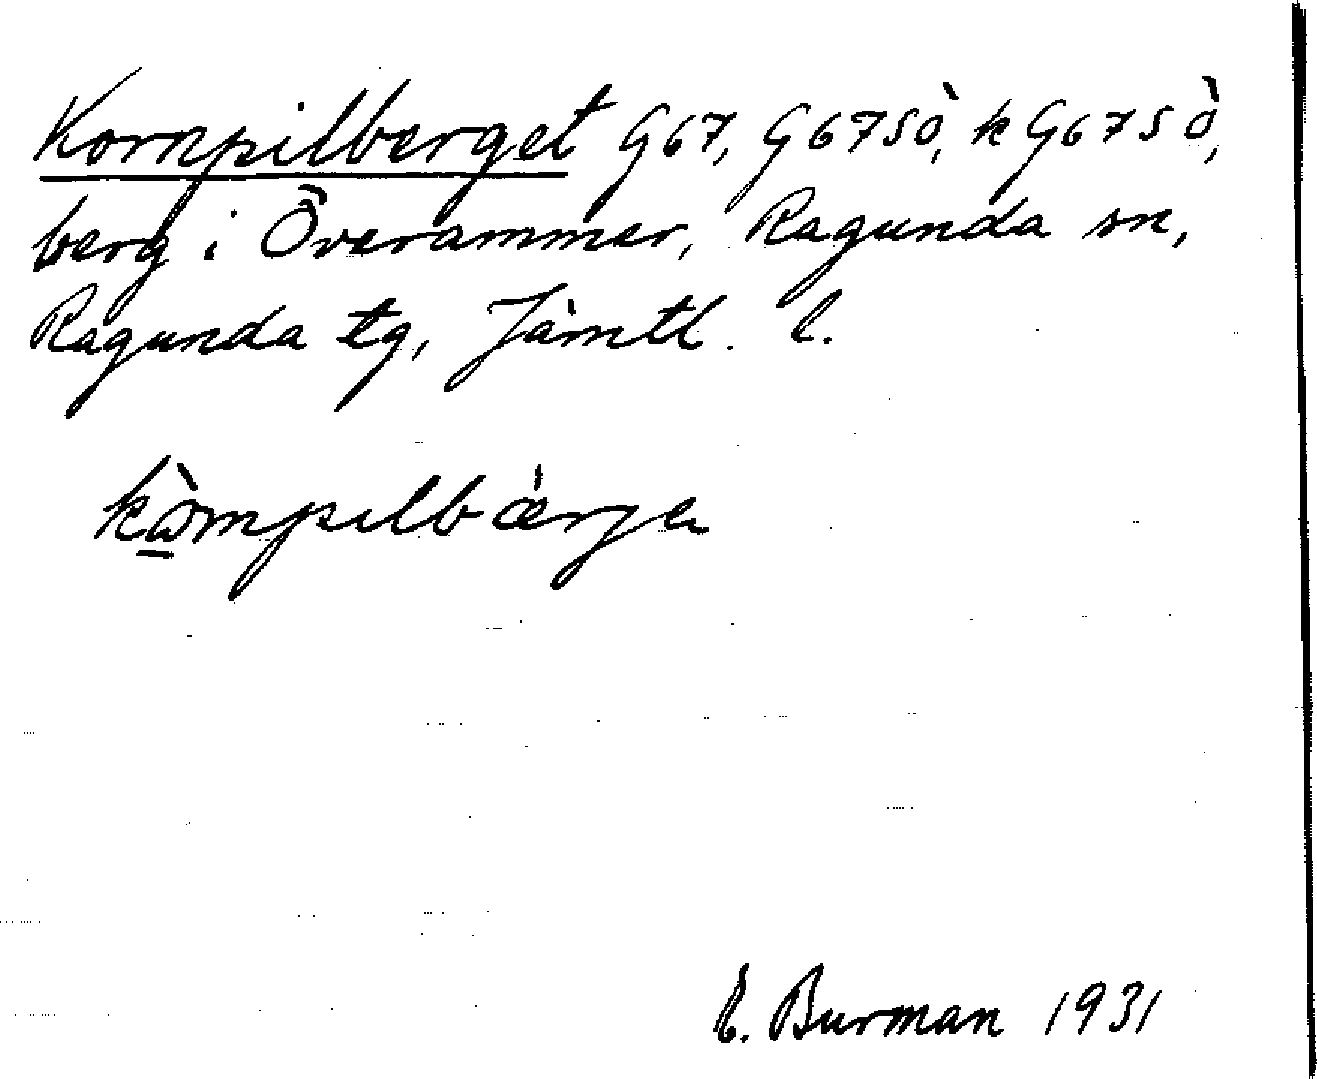 Kornpilberget G67, G67SÖ, k G67SÖ,
berg i Överammer, Ragunda sn,
Ragunda tg, Jämtl. l.
kòmpɩlbǽrjeɩ
E. Burman 1931